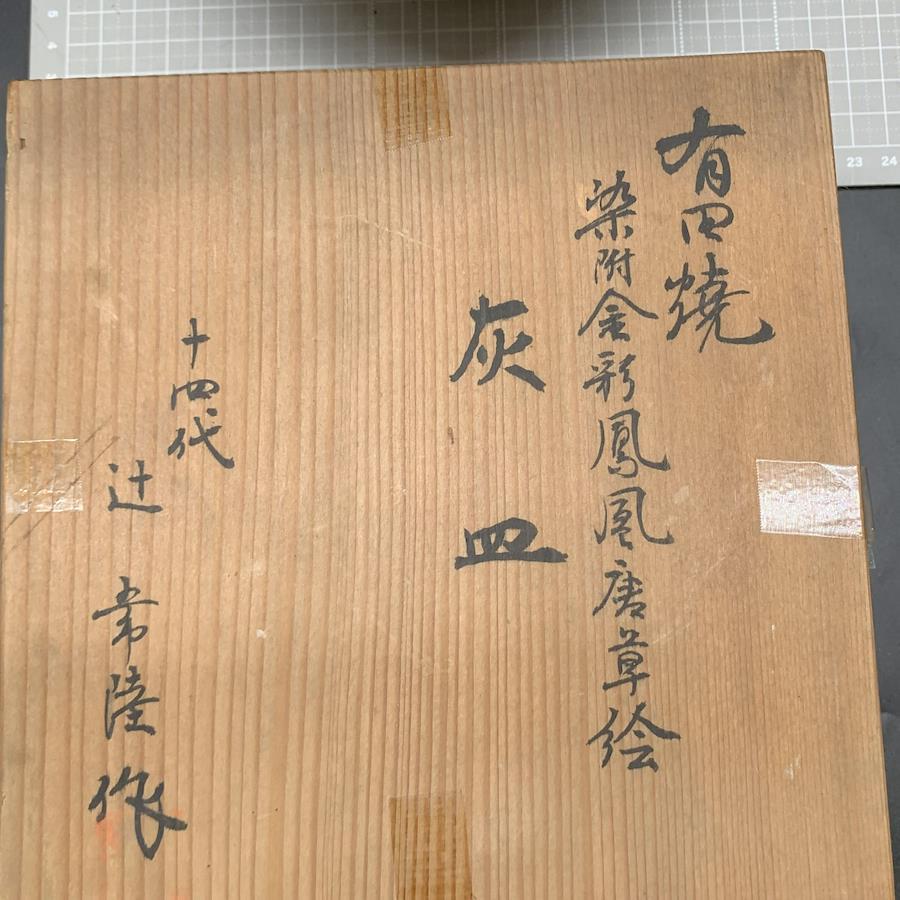 有田燒
染附金彩鳳凰唐草絵
灰皿
十四代
辻常陸作
23 24